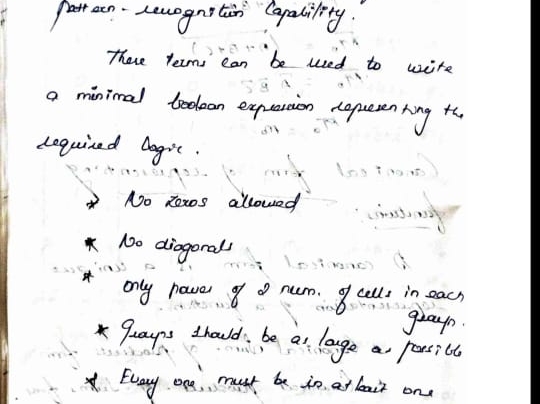 pattern-recognition Capability.
These terms can be used to write
a minimal boolean expression representing the
required logic.
* No zeros allowed
* No diagonals
* only power of 2 num. of cells in each
group.
* Groups should be as large as possible
* Every one must be in at least one